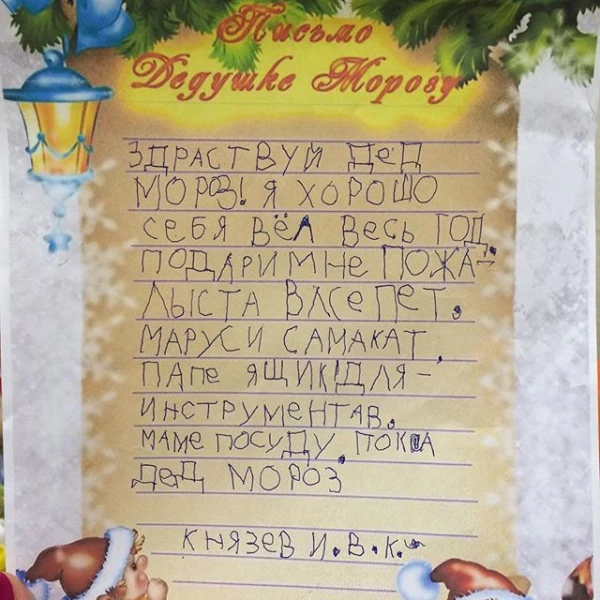 Письмо
Дедушке Морозу
ЗДРАСТВУЙ ДЕД
МОРОЗ! Я ХОРОШО
СЕБЯ ВЁЛ ВЕСЬ ГОД.
ПОДАРИ МНЕ ПОЖА-
ЛЫСТА ВЛСЕПЕТ.
МАРУСИ САМАКАТ,
ПАПЕ ЯЩИК ДЛЯ-
ИНСТРУМЕНТАВ.
МАМЕ ПОСУДУ. ПОКА
ДЕД МОРОЗ
КНЯЗЕВ И.В.К.